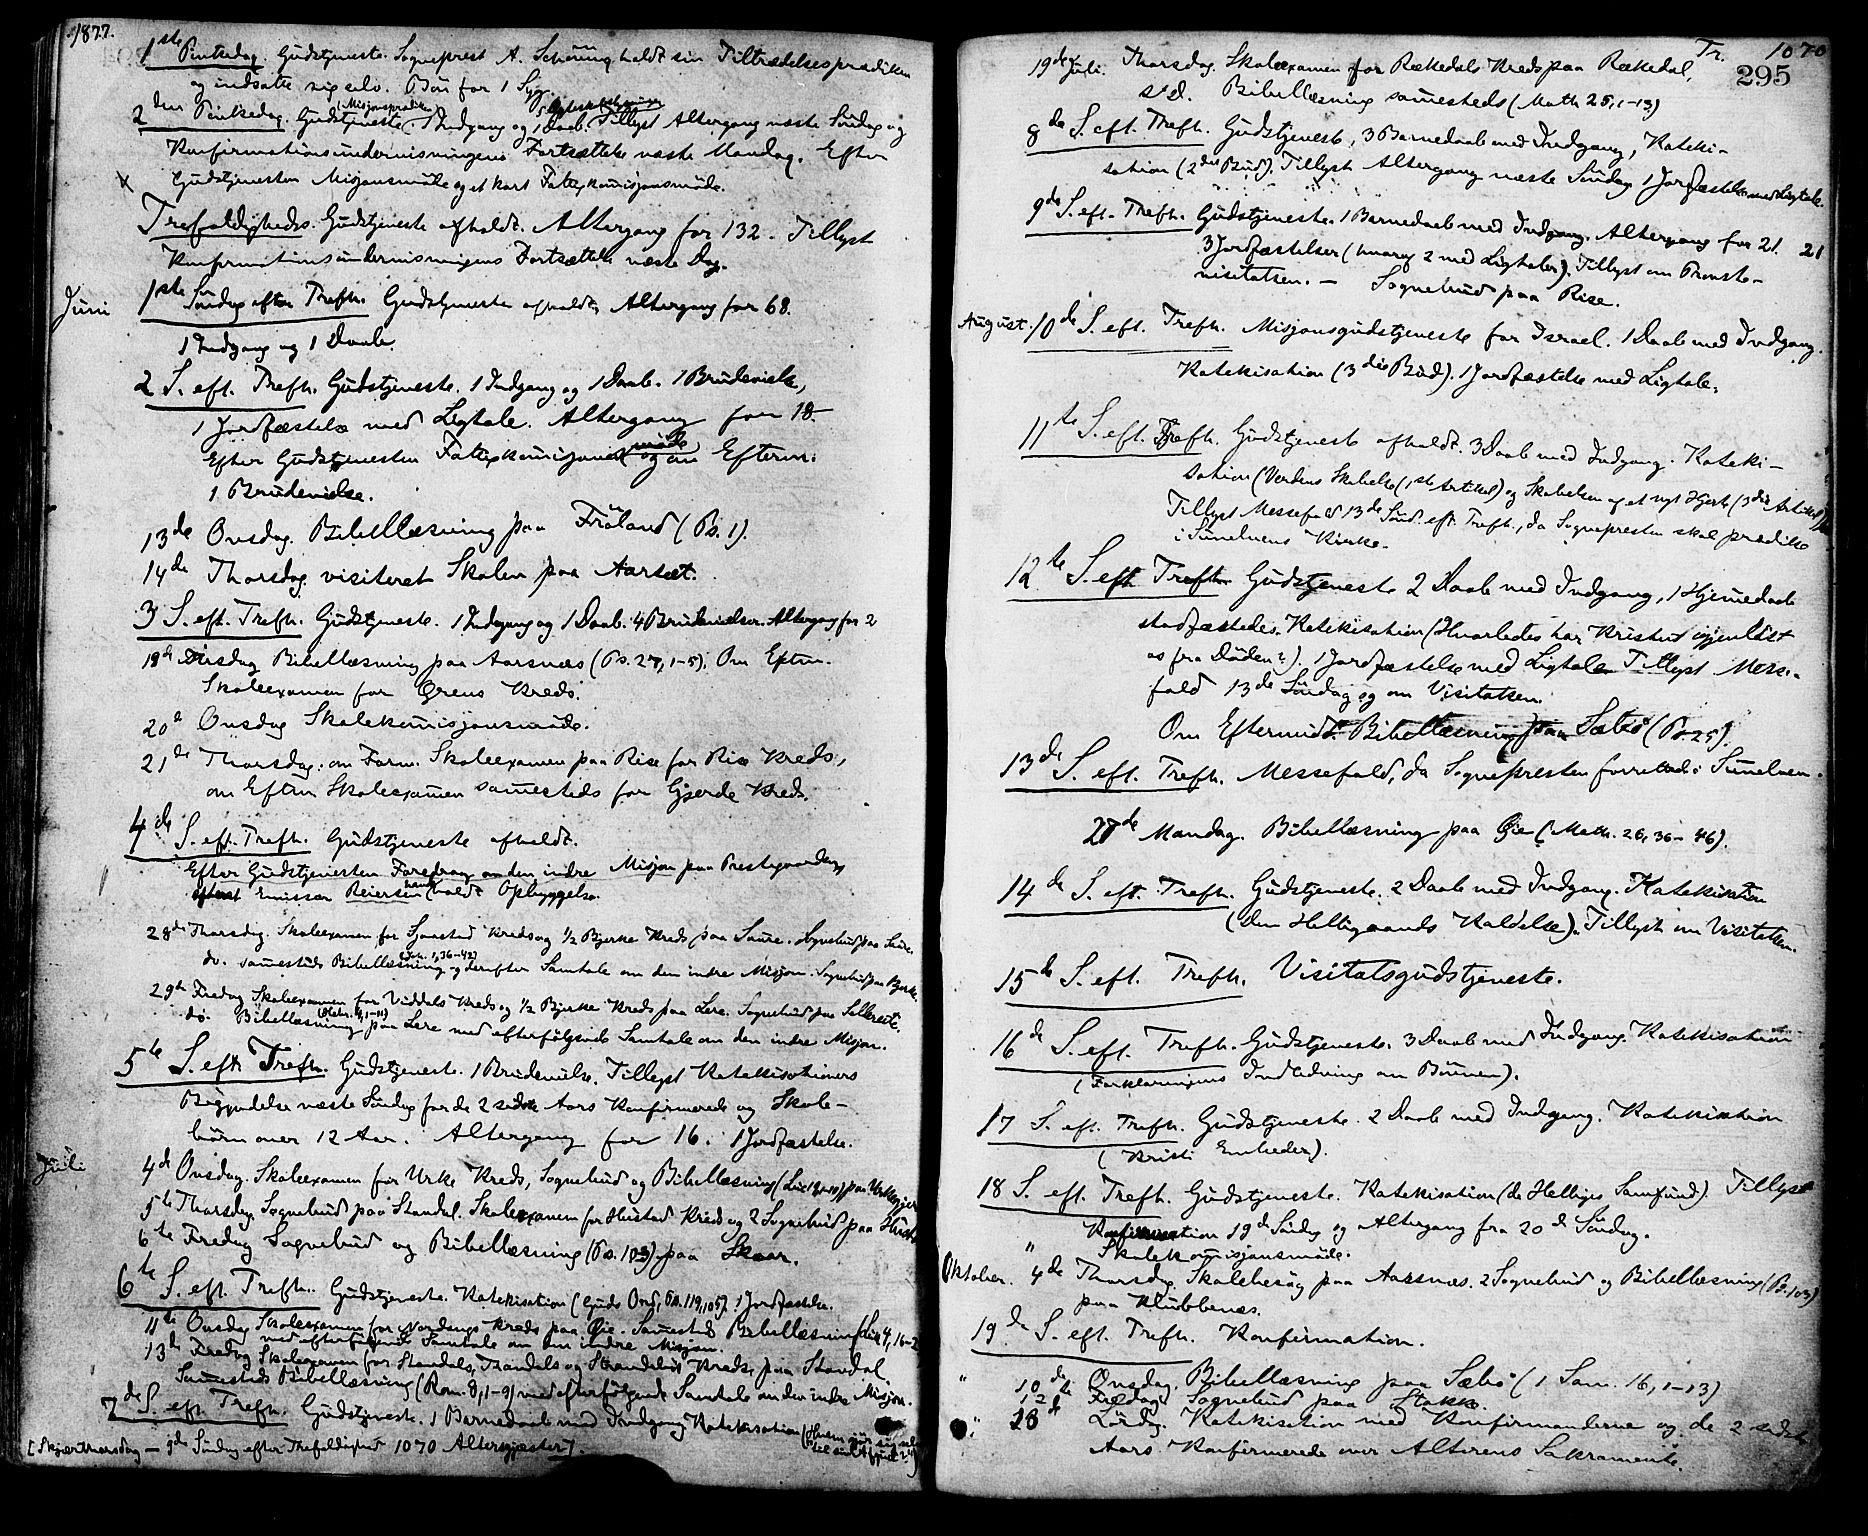 1877.
1ste Pintsedag. Gudstjeneste. Sogneprest A. Schöning holdt sin Tiltrædelsesprædiken
og indsatte sig selv. Bön for 1 Syg.
2den Pintsedag. Gudstjeneste (Misjonsprædiken). 1 Indgang og 1 Daab. Tillyst Altergang næste Söndag og
Konfirmationsundervisningens Fortsættelse næste Mandag. Efter
Gudstjenesten Misjonsmöde og et kort Fattigkomisjonsmöde.
Trefoldigheds. Gudstjeneste afholdt. Altergang for 132. Tillyst
Konfirmationsundervisningens Fortsættelse næste Dag.
Juni 1ste Söndag efter Trefh. Gudstjeneste afholdt. Altergang for 68.
1 Indgang og 1 Daab.
2 S. eft. Trefh. Gudstjeneste. 1 Indgang og 1 Daab. 1 Brudevielse,
1 Jordfæstelse med Ligtale. Altergang for 18
Efter Gudstjenesten Fattigkomisjonsmöde og om Efterm.
1 Brudevielse.
13de Onsdag. Bibellæsning paa Fröland (Ps. 1).
14de Thorsdag visiteret Skolen paa Aarsæt.
3 S. eft. Trefh. Gudstjeneste. 1 Indgang og 1 Daab. 4 Brudevielser. Altergang for 2
19de Tirsdag Bibellæsning paa Aarsnæs (Ps. 27, 1-5). Om Efterm.
Skoleexamen for Ørens Kreds.
20d Onsdag Skolekomisjonsmöde.
21de Thorsdag. om Form. Skoleexamen paa Rise for Rise Kreds,
om Efterm Skoleexamen sammesteds for Gjerde Kreds.
4de S. eft. Trefh. Gudstjeneste afholdt.
Efter Gudstjenesten Foredrag om den indre Misjon paa Prestegaarden,
Emissær Reiersen holdt Opbyggelse.
28de Thorsdag. Skoleexamen for Kreds og 1/2 Bjerke Kreds paa Saure. Sognebud paa Saure.
do. sammesteds Bibellæsning (Joh. 1, 36-42) og derefter Samtale om den indre Misjon. Sognebud paa Bjerke.
29de Fredag Skoleexamen for Viddals Kreds og 1/2 Bjerke Kreds paa Lere. Sognebud paa
do. Bibellæsning paa Lere med efterfölgende Samtale om den indre Misjon.
5te S. eft. Trefh. Gudstjeneste. 1 Brudevielse. Tillyst Katekisationers
Begyndelse næste Söndag for de 2 sidste Aars Konfirmerede og Skole-
börn over 12 Aar. Altergang for 16. 1 Jordfæstelse.
Juli 4de Onsdag. Skoleexamen for Urke Kreds, Sognebud og Bibellæsning paa
5te Thorsdag. Sognebud paa Standal. Skoleexamen for Hustad Kreds og 2 Sognebud paa Hustad
6te Fredag Sognebud og Bibellæsning (Ps. 103) paa Skaar.
6te S. eft. Trefh. Gudstjeneste. Katekisation (Guds Ord, Ps. 119, 105). 1 Jordfæstelse.
11te Onsdag Skoleexamen for Nordangs Kreds paa Øie. Sammesteds Bibellæsning (Luk. 4, 16-2
med efterfølgende Samtale om den indre Misjon.
13de Fredag Skoleexamen for Standals, Kreds, paa Standal.
Sammesteds Bibellæsning (Rom. 8, 1-9) med efterfölgende Samtale om den indre Misjon.
7de S. eft. Trefh. Gudstjeneste. 1 Barnedaab med Indgang. Katekisation
[Skjærthorsdag – 9de Söndag efter Trefoldighed 1070 Altergjæster].
Tr. 1070
295
19de Juli. Thorsdag. Skoleexamen for Rekkedals Kreds paa Rekkedal,
s.d. Bibellæsning sammesteds (Math 25, 1-13)
8de S. eft. Trefh. Gudstjeneste, 3 Barnedaab med Indgang, Kateki-
sation (2det Bud). Tillyst Altergang næste Söndag. 1 Jordfæstelse med Ligtale.
9de S. eft. Trefh. Gudstjeneste. 1 Barnedaab med Indgang. Altergang for 21. 21
3 Jordfæstelser (hvoraf 2 med Ligtaler). Tillyst om Provste-
visitatsen. – Sognebud paa Rise.
August. 10de S. eft. Trefh. Misjonsgudstjeneste for Israel. 1 Daab med Indgang.
Katekisation (3die Bud). 1 Jordfæstelse med Ligtale.
11te S. eft. Trefh. Gudstjeneste afholdt. 3 Daab med Indgang. Kateki-
sation (Verdens Skabelse (1ste Artikel) og Skabelsen af et nyt Hjerte (3die Artikel)
Tillyst Messefald 13de Sönd. eft. Trefh., da Sognepresten skal prædike
i Sunelvens Kirke.
12te S. eft. Trefh. Gudstjeneste 2 Daab med Indgang, 1 Hjemmedaab
stadfæstedes. Katekisation (Hvorledes har Kristus igjenlöst
os fra Döden?). 1 Jordfæstelse med Ligtale. Tillyst Messe-
fald 13de Söndag og om Visitatsen.
Om Eftermidd. Bibellæsning paa Sæbö (Ps. 25).
13de S. eft. Trefh. Messefald, da Sognepresten forrettede i Sunelven.
27de Mandag. Bibellæsning paa Øie (Math. 26, 36-46).
14de S. eft. Trefh. Gudstjeneste. 2 Daab med Indgang. Katekisation
(den Helligaands Kaldelse). Tillyst om Visitatsen.
15de S. eft. Trefh. Visitatsgudstjeneste.
16de S. eft. Trefh. Gudstjeneste. 3 Daab med Indgang. Katekisation
(Forklaringens Indledning om Bönnen).
17 S. eft. Trefh. Gudstjeneste. 2 Daab med Indgang. Katekisation
(Kristi Embeder).
18 S. eft. Trefh. Gudstjeneste. Katekisation (de Helliges Samfund). Tillyst
Konfirmation 19de Söndag og Altergang fra 20de Söndag.
" Skolekomisjonsmöde.
Oktober. 4de Thorsdag Skolebesög paa Aarsnæs. 2 Sognebud og Bibellæsning (Ps. 103)
paa Klubbenæs.
19de S. eft. Trefh. Konfirmation.
" 10de Onsdag. Bibellæsning paa Sæbö (1 Sam. 16, 1-13)
12te Fredag. Sognebud paa Stokke.
" 13de Lördag. Katekisation med Konfirmanderne og de 2 sidste
Aars Konfirmerede over Alterens Sakramente.